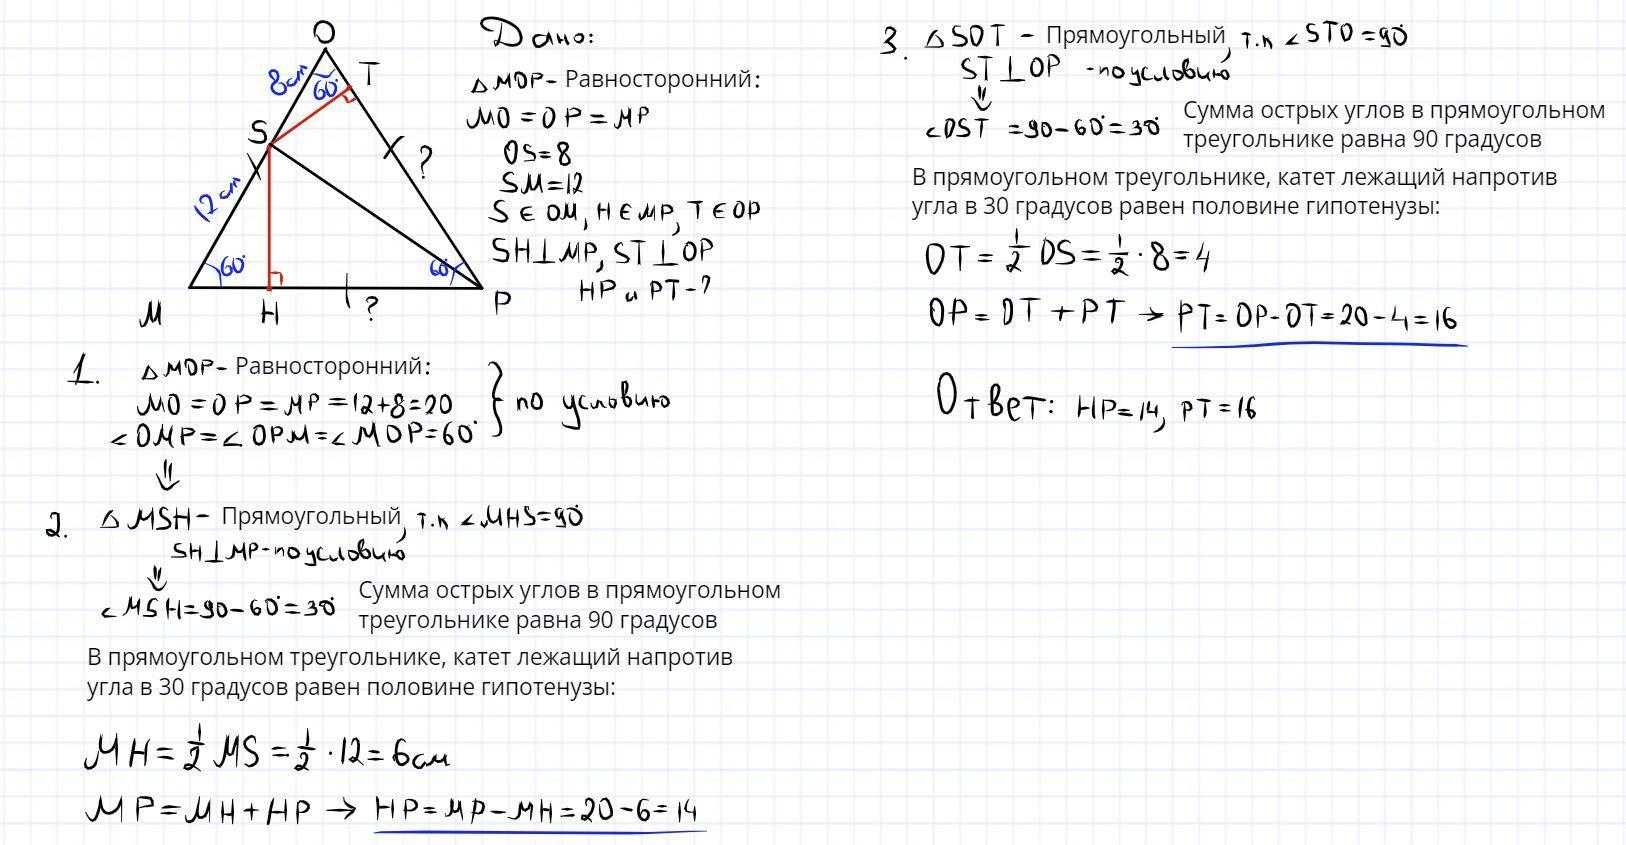 O
8см
60°
T
S
?
12см
60°
60°
M
H
?
P
Дано:
△MOP- Равносторонний:
MO=OP=MP
OS=8
SM=12
S∈OM, H∈MP, T∈OP
SH⊥MP, ST⊥OP
HP и PT-?
1. △MOP- Равносторонний:
MO=OP=MP=12+8=20
∠OMP=∠OPM=∠MOP=60°
} по условию
⇓
2. △MSH- Прямоугольный, т.к ∠MHS=90°
SH⊥MP-по условию
⇓
∠MSH=90-60°=30° Сумма острых углов в прямоугольном
треугольнике равна 90 градусов
В прямоугольном треугольнике, катет лежащий напротив
угла в 30 градусов равен половине гипотенузы:
MH=½MS=½·12=6см
MP=MH+HP → HP=MP-MH=20-6=14
3. △SOT - Прямоугольный, т.к ∠STO=90°
ST⊥OP -по условию
⇓
∠OST =90-60°=30° Сумма острых углов в прямоугольном
треугольнике равна 90 градусов
В прямоугольном треугольнике, катет лежащий напротив
угла в 30 градусов равен половине гипотенузы:
OT=½OS=½·8=4
OP=OT+PT → PT=OP-OT=20-4=16
Ответ: HP=14, PT=16